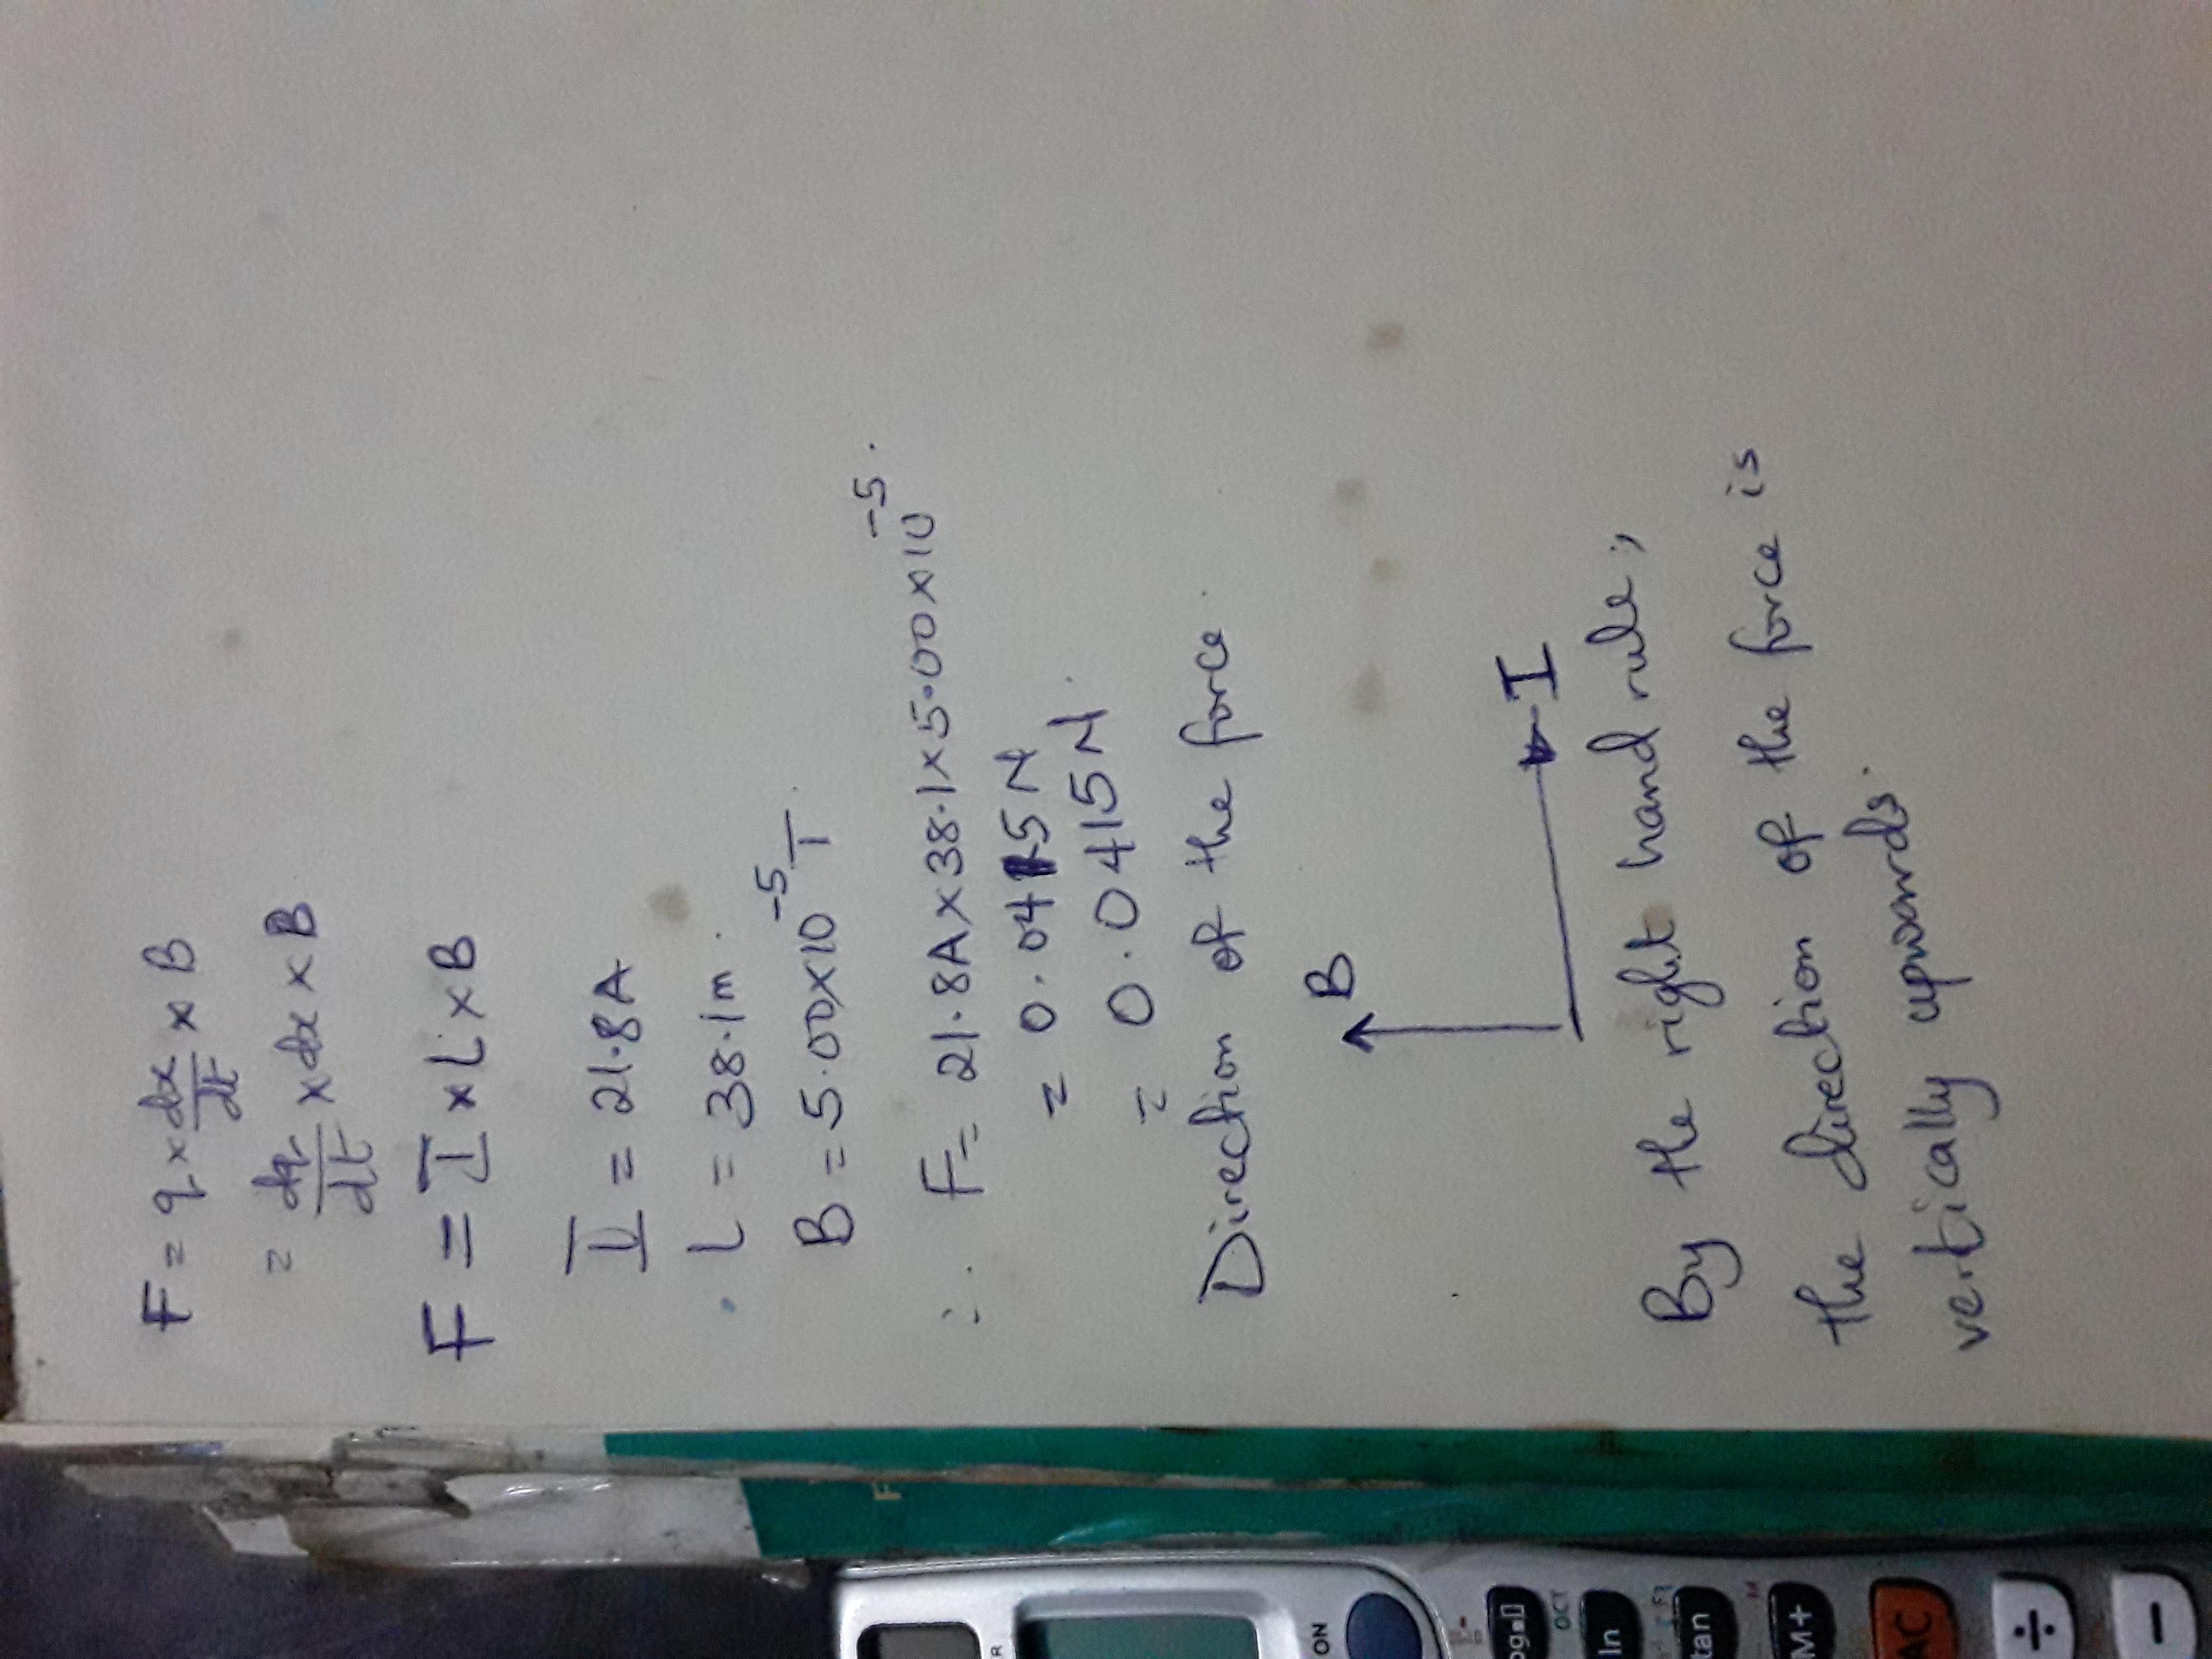 F = q × dx/dt × B
= dq/dt × dx × B
F = I × L × B
I = 21.8A
L = 38.1m.
B = 5.00×10⁻⁵ T.
∴ F = 21.8A×38.1×5.00×10⁻⁵.
= 0.0415N
= 0.0415N.
Direction of the force.
B
I
By the right hand rule;
the direction of the force is
vertically upwards.
R
ON
OCT
ln
tan
M
M+
AC
÷
−
F